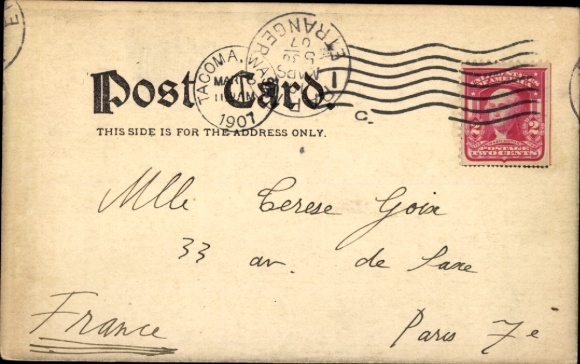 Post Card.
TACOMA, WASH.
MAR
11 AM
1907
ETRANGER
MARS
07
1
C.
THIS SIDE IS FOR THE ADDRESS ONLY.
OF AMERICA
2 2
POSTAGE
TWO CENTS
Mlle Terese Goix
33 av. de Saxe
Paris 7e
France
E